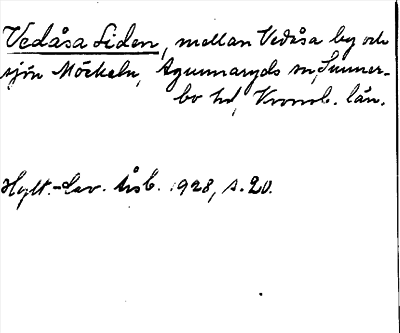 Vedåsa Liden, mellan Vedåsa by och
sjön Möckeln, Agunnaryds sn, Sunner-
bo hd, Kronob. län.
Hylt.-Cav. Årsb. 1928, s. 20.